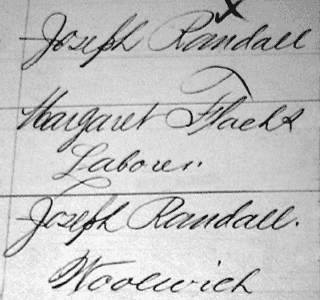 Joseph Randall
Margaret Flacht
Laborer.
Joseph Randall.
Woolwich